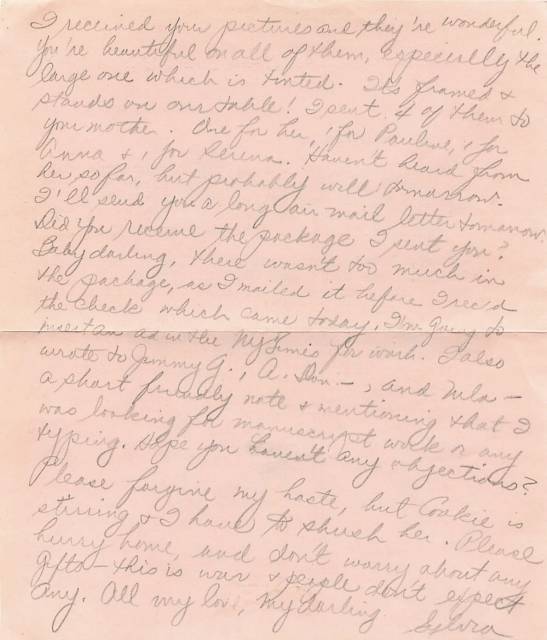 I received your pictures and they're wonderful.
You're beautiful on all of them, especially the
large one which is tinted. Its framed &
stands on our table! I sent 4 of them to
your mother. One for her, 1 for Pauline, 1 for
Anna & 1 for Serena. Haven't heard from
her so far, but probably will tomorrow.
I'll send you a long air mail letter tomorrow.
Did you receive the package I sent you?
Baby darling, there wasn't too much in
the package, as I mailed it before I rec'd
the check which came today. I'm going to
insert an ad in the NY Times for work. I also
wrote to Jimmy G., A. Don—, and Mla—
a short friendly note & mentioning that I
was looking for manuscript work or any
typing. Hope you haven't any objections?
Please forgive my haste, but Cookie is
stirring & I have to shush her. Please
hurry home, and don't worry about any
gifts — this is war & people don't expect
any. All my love, my darling
Sylvia